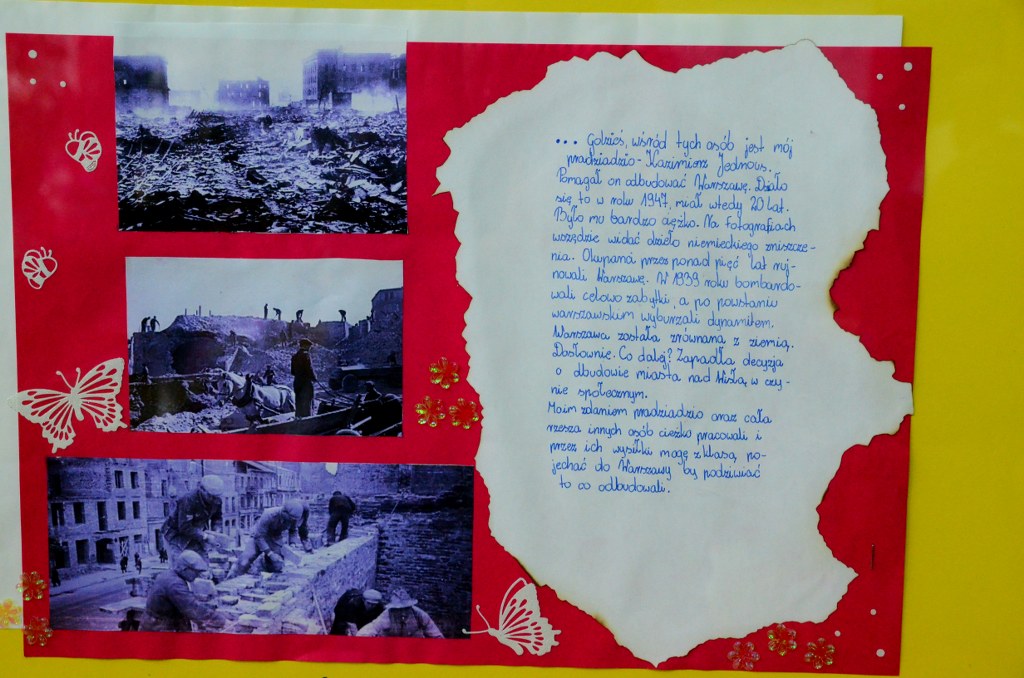 ... Gdzieś, wśród tych osób jest mój
pradziadzio - Kazimierz Jednous.
Pomagał on odbudować Warszawę. Działo
się to w roku 1947, miał wtedy 20 lat.
Było mu bardzo ciężko. Na fotografiach
wszędzie widać dzieło niemieckiego zniszcze-
nia. Okupanci przez ponad pięć lat ruj-
nowali Warszawę. W 1939 roku bombardo-
wali celowo zabytki, a po powstaniu
warszawskim wyburzali dynamitem.
Warszawa została zrównana z ziemią.
Dosłownie. Co dalej? Zapadła decyzja
o odbudowie miasta nad Wisłą w czy-
nie społecznym.
Moim zdaniem pradziadzio oraz cała
rzesza innych osób ciężko pracowali i
przez ich wysiłki mogę z klasą po-
jechać do Warszawy by podziwiać
to co odbudowali.